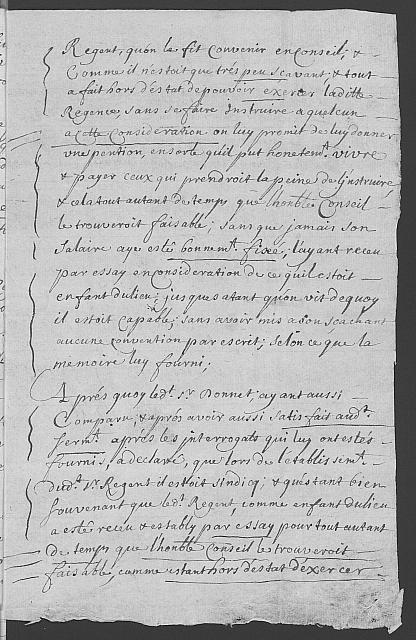 Regent, qu'on le fit Convenir en Conseil; &
Comme il n'estoit que trés peu Scavant; & tout
a fait hors d'estat de pouvoir exercer laditte
Regence, sans se faire Instruire a quelcun
a cette Consideration on luy promit de luy donner
une pention, en sorte quil put honetemt. vivre
& payer ceux qui prendroit la peine de l'instruire
& cela tout autant de temps que l'honble Conseil
le trouveroit faisable; sans que jamais son
Salaire aye esté bonnemt. fixé; l'ayant receu
par essay en consideration de ce quil estoit
enfant du lieu; jusques a tant qu'on vit de quoy
il estoit capable; sans avoir mis a son scachant
aucune convention par escrit; selon ce que la
memoire luy fourni;
Aprés quoy ledt. Sr. Donnet; ayant aussi
Comparu; & aprés avoir aussi satisfait audt.
sermt. aprés les interrogats qui luy ont estés
fournis; a declaré, que lors de l'etablissemt.
dudt. Sr. Regent il estoit sindicq; & questant bien
souvenant que ledt. Regent, comme enfant du lieu
a esté receu & estably par essay pour tout autant
de temps que l'honble Conseil le trouveroit
faisable, comme estant hors d'estat d'exercer